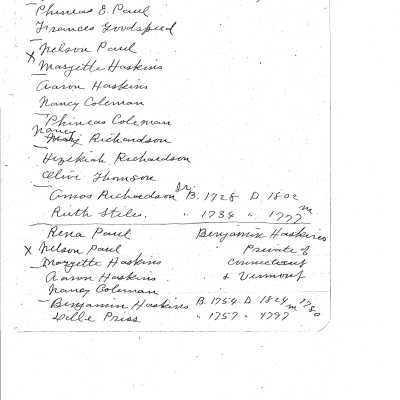 Phineas E. Paul
Frances Goodspeed
x Nelson Paul
Margette Haskins
Aaron Haskins
Nancy Coleman
Phineas Coleman
Nancy Richardson
Hezekiah Richardson
Olive Thomson
Amos Richardson Jr. B. 1728 D 1802
Ruth Stiles. " 1734 " 1777 m
Rena Paul Benjamin Haskins
x Nelson Paul Private of
Margette Haskins Connecticut
Aaron Haskins & Vermont
Nancy Coleman
Benjamin Haskins B. 1754 D 1824 m 1780
Priss " 1757 "